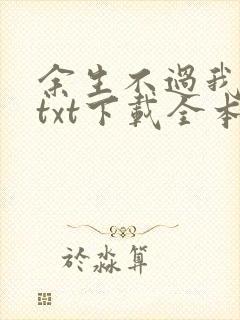 余生不過我
txt下載全本
於淼算